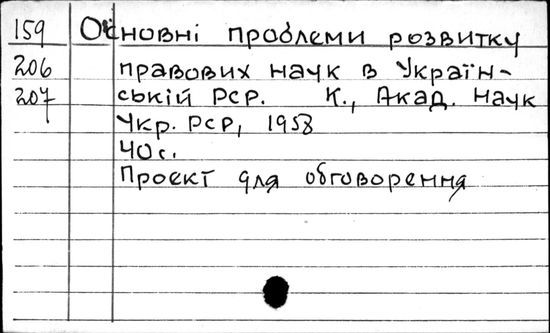 159 Основні проблеми розвитку
206 правових наук в Україн-
207 ській РСР. К., Акад. наук
Укр. РСР, 1958
40с.
Проект для обговорення